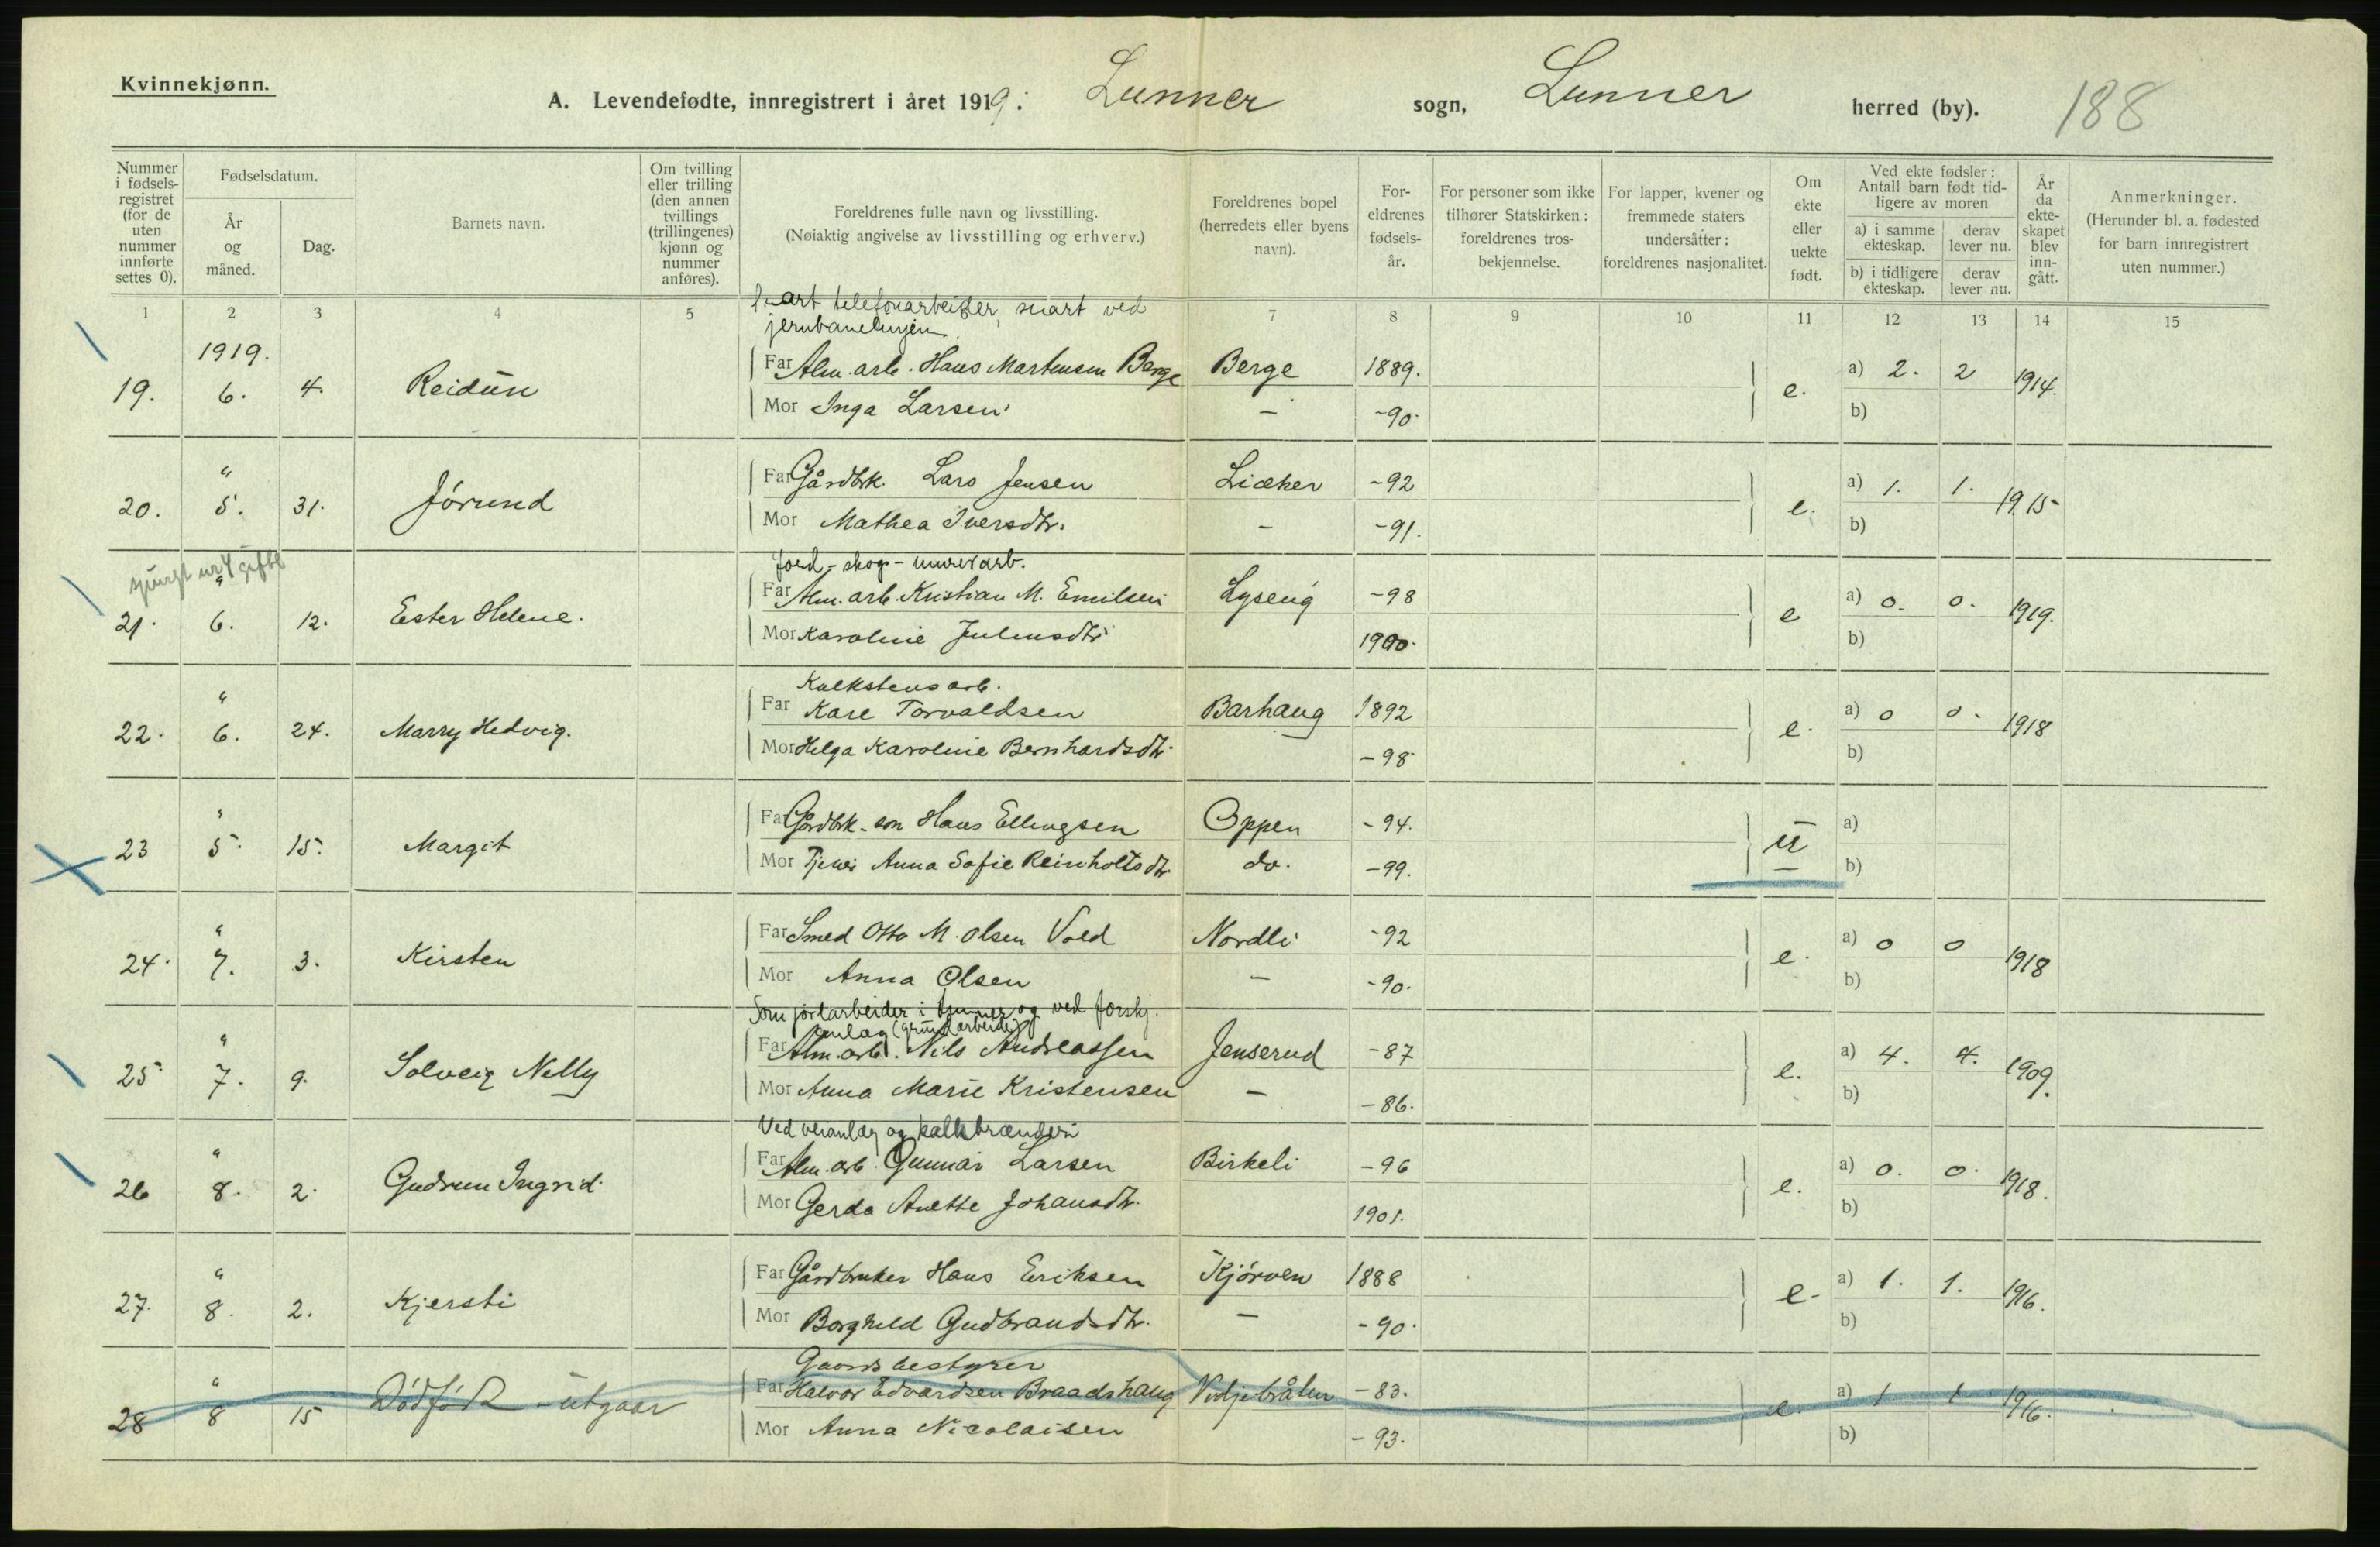 Kvinnekjønn.
A. Levendefødte, innregistrert i året 1919. Lunner sogn, Lunner herred (by). 188
Nummer i fødselsregistret (for de uten nummer innførte settes 0).
Fødselsdatum.
År og måned.
Dag.
Barnets navn.
Om tvilling eller trilling (den annen tvillings (trillingenes) kjønn og nummer anføres).
Foreldrenes fulle navn og livsstilling.
(Nøiaktig angivelse av livsstilling og erhverv.)
Foreldrenes bopel (herredets eller byens navn).
Foreldrenes fødselsår.
For personer som ikke tilhører Statskirken: foreldrenes trosbekjennelse.
For lapper, kvener og fremmede staters undersåtter: foreldrenes nasjonalitet.
Om ekte eller uekte født.
Ved ekte fødsler: Antall barn født tidligere av moren
a) i samme ekteskap. derav lever nu.
b) i tidligere ekteskap. derav lever nu.
År da ekteskapet blev inngått.
Anmerkninger.
(Herunder bl. a. fødested for barn innregistrert uten nummer.)
1 2 3 4 5 7 8 9 10 11 12 13 14 15
snart telefonarbeider, snart ved
jernbanelinjen
1919.
19. 6. 4. Reidun Far Alm. arb. Hans Martinsen Berge Berge 1889. e. a) 2. 2 1914.
Mor Inga Larsen – -90. b)
20. " 5. 31. Jørund Far Gårdbrk. Lars Jensen Liæker -92 e. a) 1. 1. 1915
Mor Mathea Iversdtr. – -91. b)
spurgt nr 4 gifte
Jord-skog-murerarb.
21. " 6. 12. Ester Helene. Far Alm. arb. Kristian M. Emilsen Lyseng -98 e a) 0. 0. 1919.
Mor Karoline Juliusdtr 1900. b)
Kalkstensarb.
22. " 6. 24. Marry Hedvig. Far Kare Torvaldsen Barhaug 1892 e. a) 0 0. 1918
Mor Helga Karoline Bernhardsdtr. -98 b)
23 " 5. 15. Margit Far Gårdbrk-søn Hans Ellingsen Oppen -94. u a)
Mor Tjener Anna Sofie Reinholtsdtr. do. -99. b)
24. " 7. 3. Kirsten Far Smed Otto M. Olsen Vold Nordli -92 e. a) 0 0 1918
Mor Anna Olsen – -90. b)
Som jordarbeider i Lunner og ved forskj.
anlæg (grundarbeide)
25 " 7. 9. Solveig Nelly Far Alm. arb. Nils Andreassen Jenserud -87 e. a) 4. 4. 1909.
Mor Anna Marie Kristensen – -86. b)
Ved veianlæg og kalkbrænderi
26 " 8. 2. Gudrun Ingrid Far Alm. arb. Gunnar Larsen Birkeli -96 e. a) 0. 0. 1918.
Mor Gerda Anette Johansdtr. 1901. b)
27. " 8. 2. Kjersti Far Gårdbruker Hans Eriksen Kjørven 1888 e. a) 1. 1. 1916.
Mor Borghild Gudbrandsdtr. – -90. b)
Gaardsbestyrer
28 " 8 15 Dødfødt - utgaar Far Halvor Edvardsen Braadshaug -83. e. a) 1 1 1916.
Mor Anna Nicolaisen -93. b)